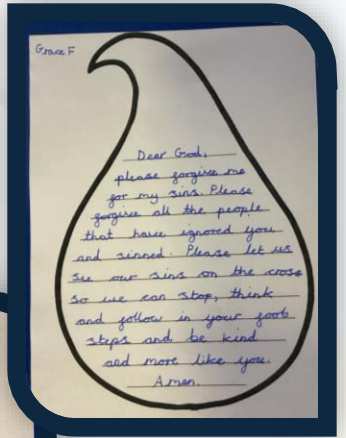 Grace F
Dear God,
please forgive me
for my sins. Please
forgive all the people
that have ignored you
and sinned. Please let us
see our sins on the cross
so we can stop, think
and follow in your foot
steps and be kind
and more like you.
Amen.